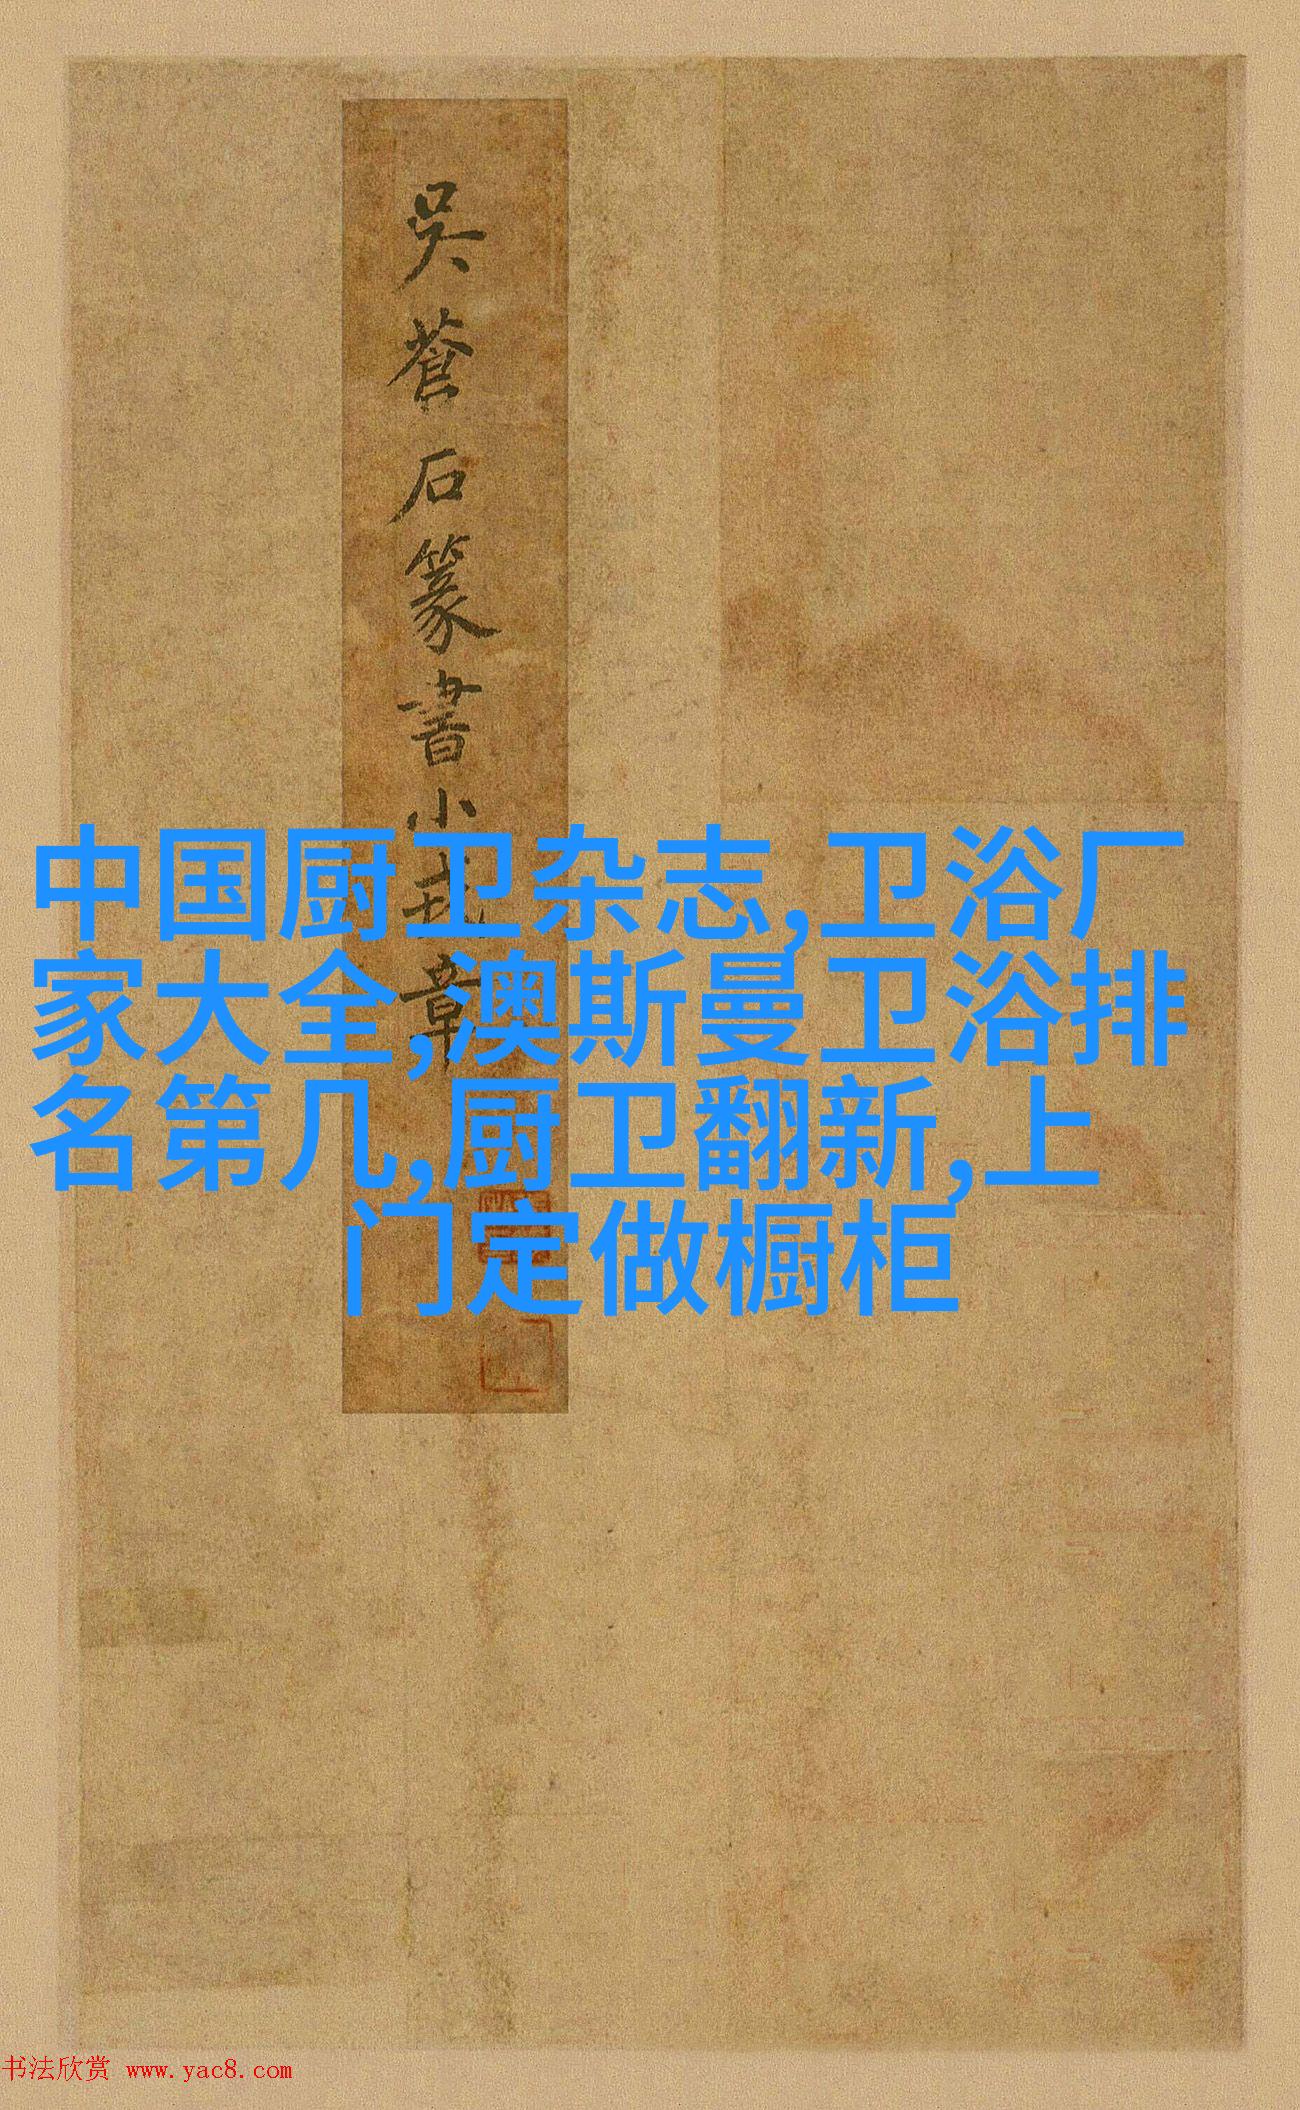 吳蒼石篆書小戎章
中国厨卫杂志,卫浴厂
家大全,澳斯曼卫浴排
名第几,厨卫翻新,上
门定做橱柜
书法欣赏 www.yac8.com